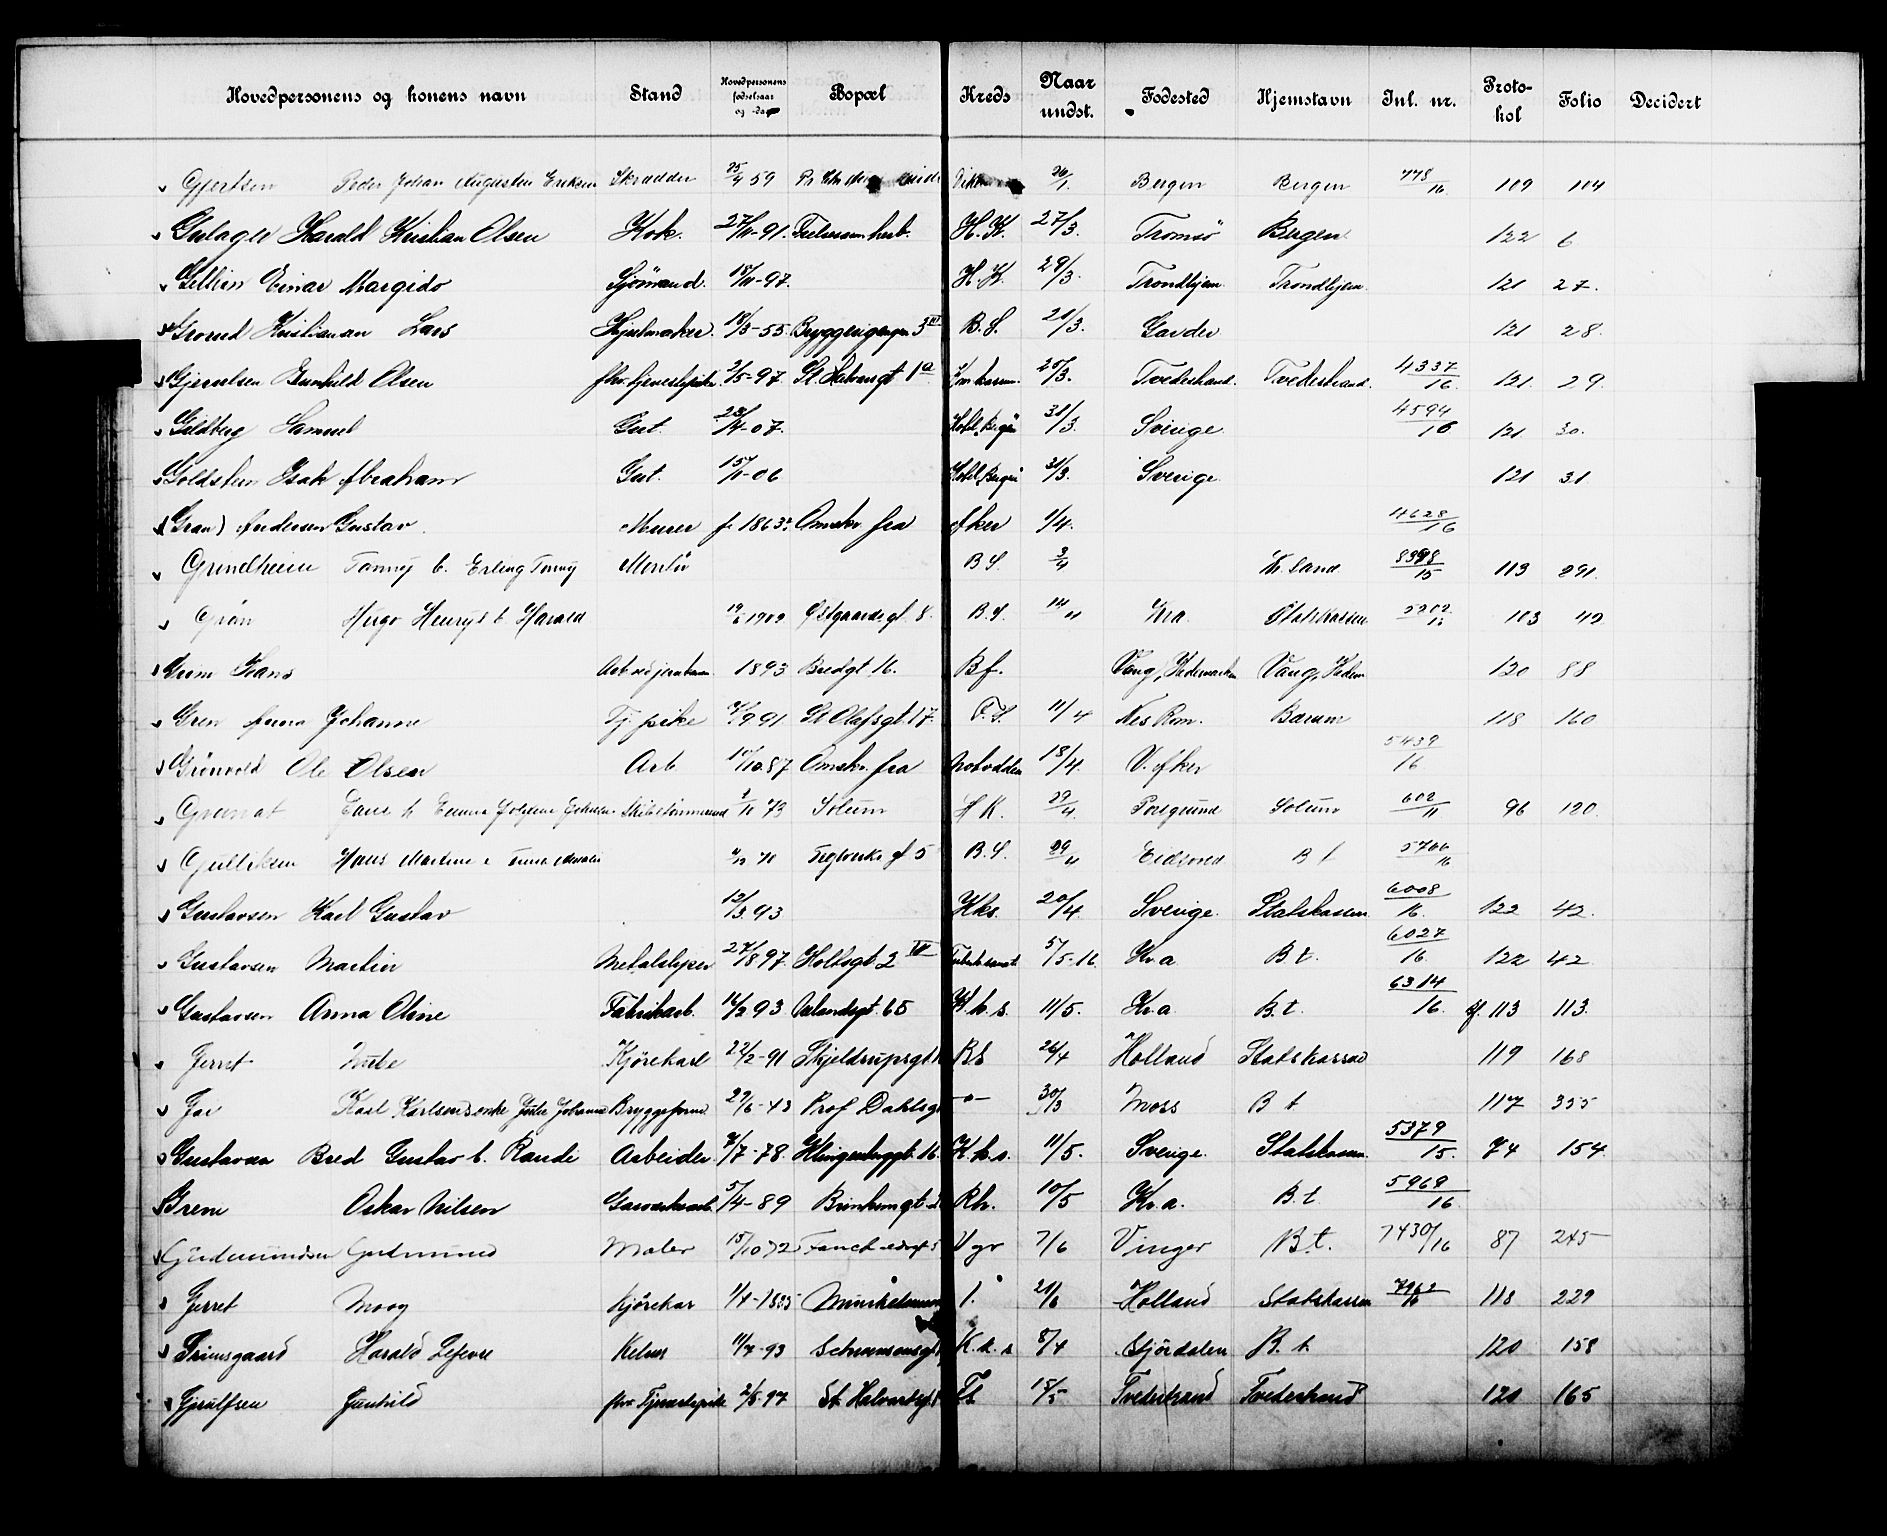 Hovedpersonens og konens navn Stand Hovedpersonens fødselsaar og -dag Bopæl Kreds Naar undst. Fødested Hjemstavn Jnl. nr. Protokol Folio Decidert
Gjertsen Peder Johan Augustin Eriksen Skrædder 25/4 59 20/1. Bergen Bergen 778/16 109 104
Harald Kristian Olsen Kok. 27/11-91. H.K. 27/3. Tromsö Bergen 122 6
Einar Margido Sjömand. 18/11-97. H.K. 29/3. Trondhjem Trondhjem 121 27.
Grorud Kristianan Lars Hjulmaker. 18/3-55. Bryggerigangen 3 III B.S. 21/3. 121 28.
Gjerulsen Gunhild Olsen fhv. tjenestepike 2/5-97 St. Halvardsgt 1a 25/3. Tvedestrand. Tvedestrand. 4337/16. 121. 29.
Goldberg Samuel Gut. 23/4-07. Hotel Bergen 31/3. Sverige. 4594/16 121 30.
Goldstein Isak Abraham Gut. 15/11-06 Hotel Bergen 31/3. Sverige. 121 31
(Gran) Andersen Gustav. Murer f. 1863? Omskr. fra Aker 1/4. 4628/16
Grindheim Tanny b. Erling Tonny Montör B.S. 3/4 Kr.sand 8398/15 113 291.
Grön Hugo Henry b. Harald 19/6 1909 Östgaards gt. 8. B.S. 14/4 Kra Statskassen 103 49
Grim Hans Arb. ved jernbanen 1893 Bredgt 16. Bf. Vang, Hedemarken Vang, Hedm. 120 88
Gren Anna Johanne Tj.pike 9/9 91 St Olafsgt. 17. F.S. 11/4 Nes Rom. Bærum 118 160
Grönvold Ole Olsen Arb. 10/10.87 Omskr. fra Notodden 18/4. V. Aker 5439/16.
Granat Skibstömmermand 2/11 73 Solum H K. 29/4. Porsgrund Solum 602/11 96 120.
Gulliksen Hans Martinius 4/12 70 Teglverks gt 5 B.S. 29/4 Eidsvold B t 5766/16
Gustavsen Karl Gustav 12/3.93 Kks. 20/4. Sverige. Statskassen 6008/16. 122 42.
Gustavsen Martin Metalsliper 27/8 97. Holtsgt 2 III 5/5-16. Kr.a B.t. 6027/16. 122 42
Gustavsen Anna Oline Fabrikarb. 14/2 93. Oslandsgt. 65 K.k.s. 11/5. Kr.a B.t. 6314/16. 113 113.
Gerret Kjörekarl 22/2-91 Skjeldrupsgt Bt 26/4 Holland Statskassen 119 168
Karl Karlsen Bryggeform. 29/6-43 Prof Dahlsg. -"- 30/3 Moss B t 117 355
Gustavsen Bred Gustav b. Randi Arbeider. 7/7-78. Klingenberggt. 16. K.k.s. 11/5. Sverige. Statskassen 5379/15. 74 154.
Grene Oskar Nilsen Gasverksarb. 5/4-89 Brinkengt. Rh. 10/5 Kr.a. B.t. 5969/16.
Gudmundsen Gudmund Maler 15/10 72 V gr 7/6 Vinger B.t. 7430/16 87 245
Gerret Moog Kjörekar 1/4-1885 Munkedamsv 1. 21/6 Holland Statskassen 7962/16 118 229
Grimsgaard Harald Lefevre Kelner 11/7-93 Schwensensgt K.k.s 8/4 Stjördalen B.t. 120 158
Gjerulfsen Gunhild fhv. Tjenestepike 2/5-97 St. Halvardsgt. 1 Ft 15/5 Tvedestrand Tvedestrand 120 165